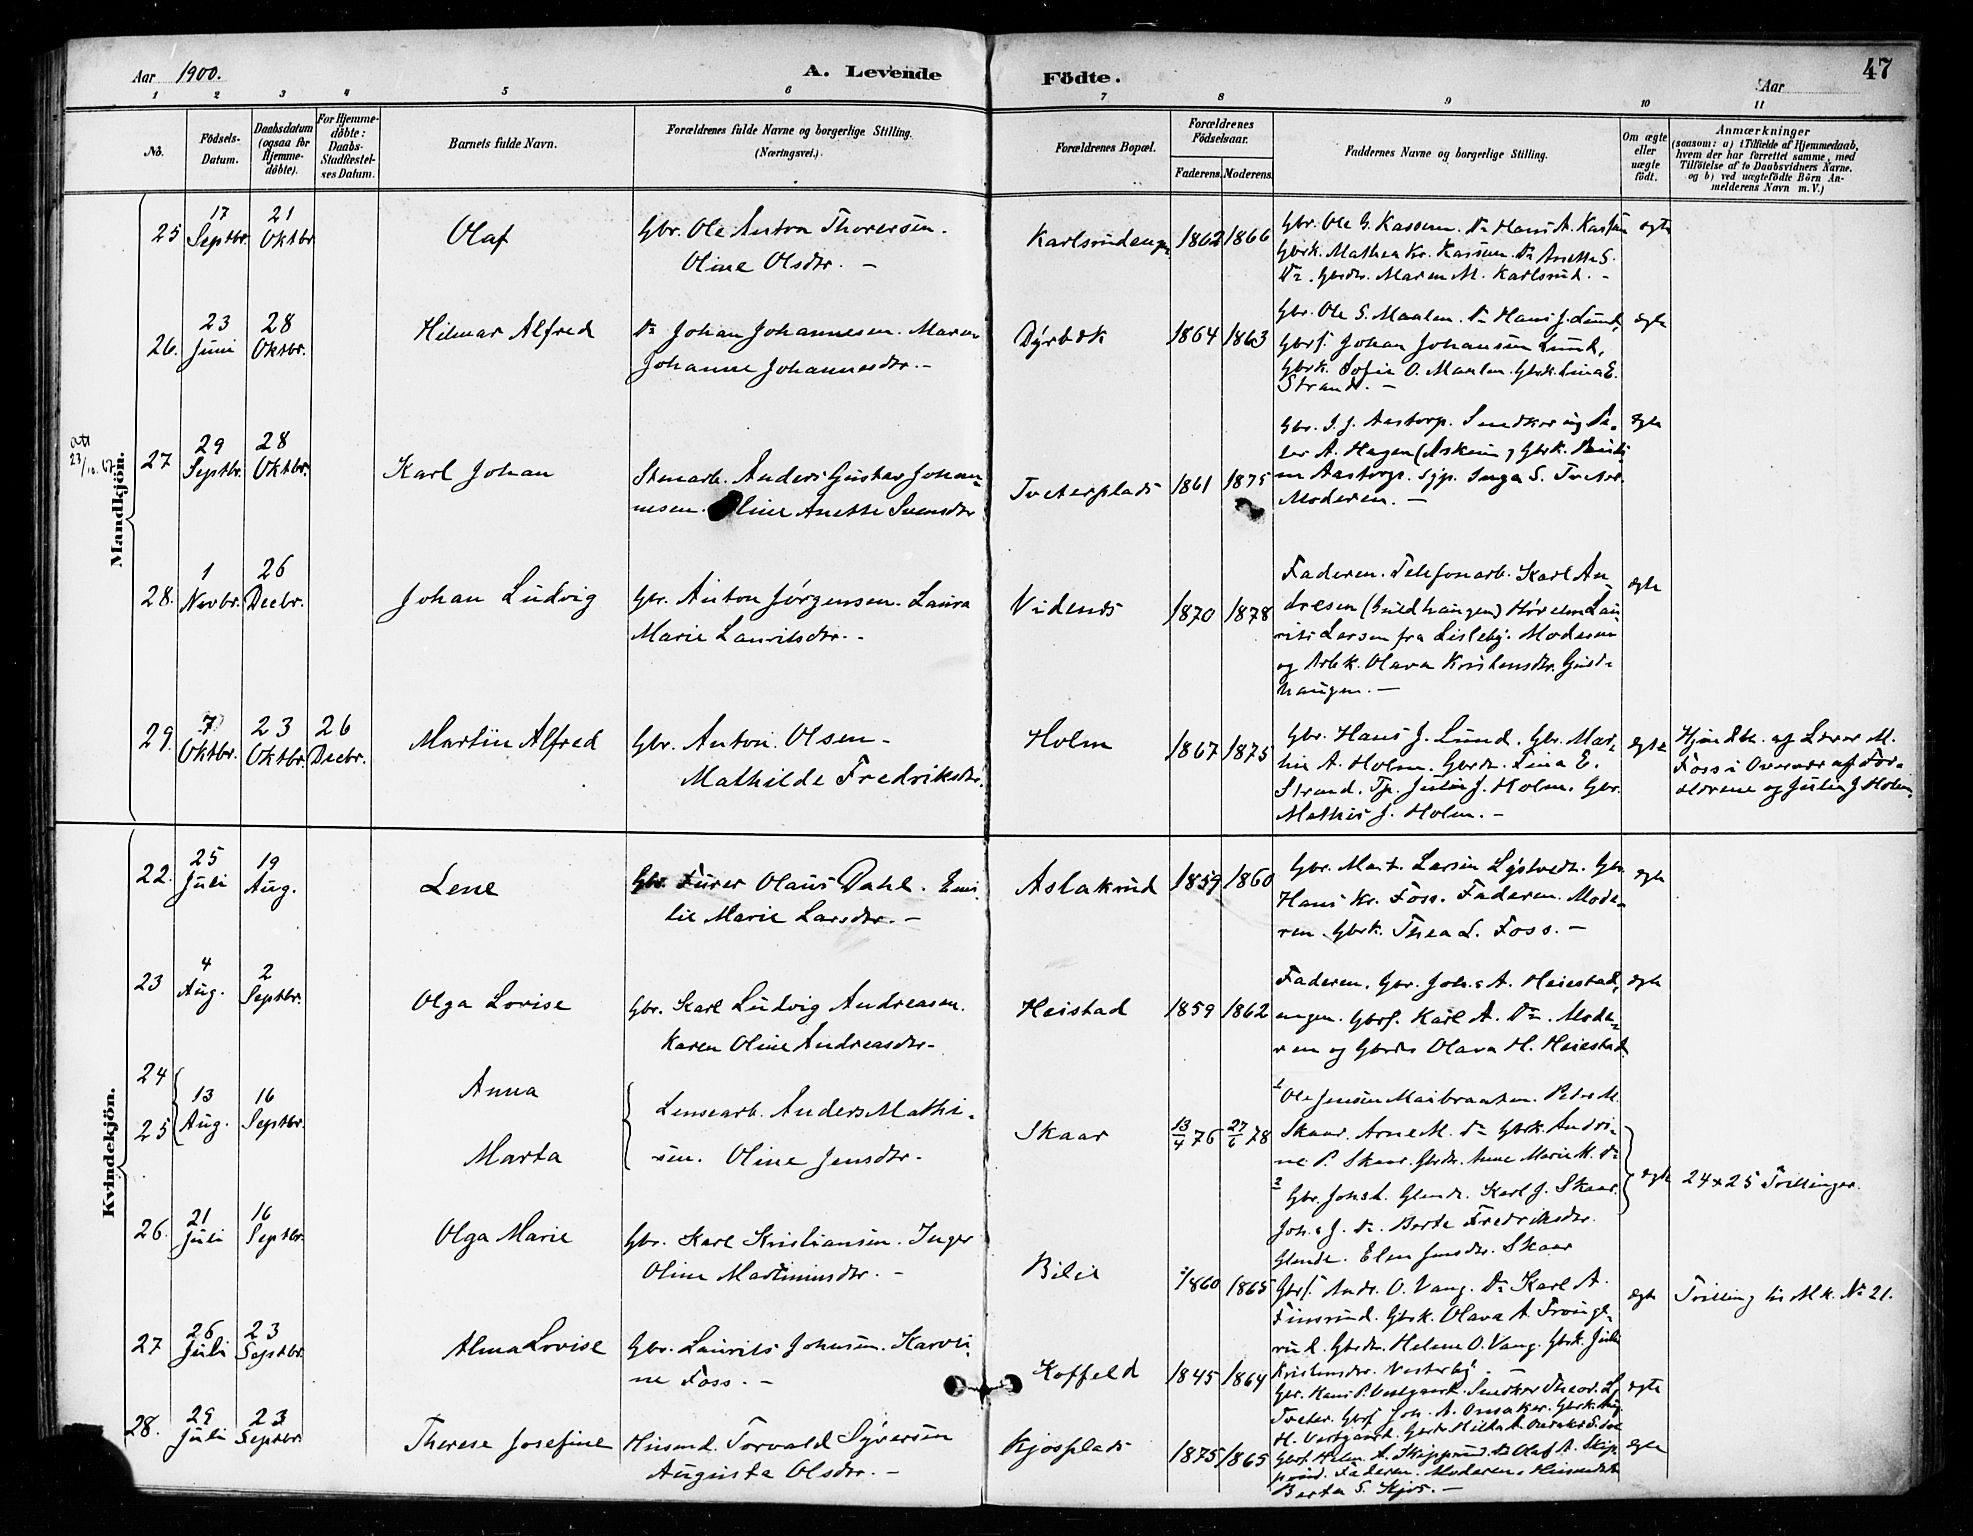 Aar 1900.
A. Levende
Födte.
Aar
47
1 2 3 4 5 6 7 8 9 10 11
No.
Födsels-
Datum.
Daabsdatum
(ogsaa for
Hjemme-
döbte).
For Hjemme-
döbte:
Daabs-
Stadfæstel-
ses Datum.
Barnets fulde Navn.
Forældrenes fulde Navne og borgerlige Stilling.
(Næringsvei.)
Forældrenes Bopæl.
Forældrenes
Födselsaar.
Faderens. Moderens.
Faddernes Navne og borgerlige Stilling.
Om ægte
eller
uægte
födt.
Anmærkninger
(saasom: a) i Tilfælde af Hjemmedaab,
hvem der har forrettet samme, med
Tilföielse af to Daabsvidners Navne.
og b) ved uægtefödte Börn An-
melderens Navn m. V.)
Mandkjön.
25
17
Septbr.
21
Oktbr.
Olaf
Gbr. Ole Anton Thoresen.
Oline Olsdtr. —
1862 1866
Gbr. Ole G. Kassen. Do Hans A.
Gbrk. Mathea Kr. Kassen. Do Anette S.
Do. Gbrdtr. Maren M. Karlsrud. -
ægte
26.
23
Juni
28
Oktbr.
Hilmar Alfred
Do Johan Johannesen. Maren
Johanne Johannesdtr. -
Dyrbæk
1864 1863
Gbr. Ole S. Maalen. Do Hans J. Lund,
Gbrs. Johan Johansen Lund,
Gbrk. Sofie O. Maalen. Gbrk. Lina E.
Strand. —
ægte
att
23/10.
27
29
Septbr.
28
Oktbr.
Karl Johan
Stenarb. Anders Gustav Johan-
nesen. Oline Anette Svensdtr
Tveterplads
1861 1875
Gbr. J. J. Aastorp. Snedker og
A. Hagen (Askim) Gbrk.
Aastorp. Inga S. Tveter.
Moderen. —
ægte
28.
1
Novbr.
26
Decbr.
Johan Ludvig
Gbr. Anton Jørgensen. Laura
Marie Lauritsdtr. -
Vidnes
1870 1878
Faderen. Telefonarb. Karl An-
dresen (Guldhaugen) Lau-
rits Larsen fra Lisleby. Moderen
og Arbk. Olava Kristensdtr. Guld-
haugen. —
ægte
29.
7
Oktbr.
23
Oktbr.
26
Decbr.
Martin Alfred
Gbr. Anton Olsen -
Mathilde Fredriksdtr.
Holm
1867 1875
Gbr. Hans J. Lund. Gbr. Mar-
A. Holm. Gbrdtr. Lina E.
Strand. Tp. Julie J. Holm. Gbr.
Mathis J. Holm. -
ægte
Hjmdbt. af Lærer M.
Foss i Overvær af For-
ældrene og Julie J. Holm.
Kvindekjön.
22.
25
Juli
19
Aug.
Lene
Gbr. Furer Olaus Dahl. Emi-
lie Marie Larsdtr. —
Aslakrud
1859 1860
Gbr. Mart. Larsen Gbr.
Hans Kr. Foss. Faderen. Mode-
ren. Gbrk. Thea L. Foss. -
ægte
23
4
Aug.
2
Septbr.
Olga Lovise
Gbr. Karl Ludvig Andreasen.
Karen Oline Andreasdtr.
Heistad
1859 1862
Faderen. Gbr. Johs A. Heiestad,
ungen. Gbrs. Karl A. Do. Mode-
ren og Gbrdtr Olava H. Heiestad
ægte
24
25
13
Aug.
16
Septbr.
Anna
Marta
Lensearb. Anders Mathi-
sen. Oline Jensdtr.
Skaar
13/4 76 27/6 78
1 Ole Jensen Maibraaten. Peder M.
Skaar. Arne M. Do Gbrk. Andri-
ne P. Skaar. Gbrdtr. Anne Marie M. Do
2 Gbr. Johs L. Glende. Karl J. Skaar.
Johs J. Do. Berte Fredriksdtr.
Glende. Elen Jensdtr. Skaar
ægte
24 + 25 Tvillinger.
26.
21
Juli
16
Septbr.
Olga Marie
Gbr. Karl Kristiansen. Inger
Oline Martinusdtr. -
Bilie
1860 1865
Gbrs. Andr. O. Vang. Do Karl A.
Finsrud. Gbrk. Olava A.
Gbrdtr. Helene O. Vang. Gbrk. Julie
Kristensdtr. Vesterby. —
ægte
Tvilling til M.k. No 21.
27
26
Juli
23
Septbr.
Alma Lovise
Gbr. Laurits Johnsen. Karoli-
ne Foss. —
Koffeld
1845 1864
Gbr. Hans P. Vestgaard. Snedker Theod. L.
Tveter. Gbrs. Joh. A. Onsaker. Gbrk.
H. Vestgaard.
ægte
28.
29
Juli
23
Septbr.
Therese Josefine
Husmd. Torvald Syversen
Augusta Olsdtr. —
Kjosplads
1875 1865
Do Olaf A.
Faderen. Moderen.
Berta S. Kjos. —
ægte